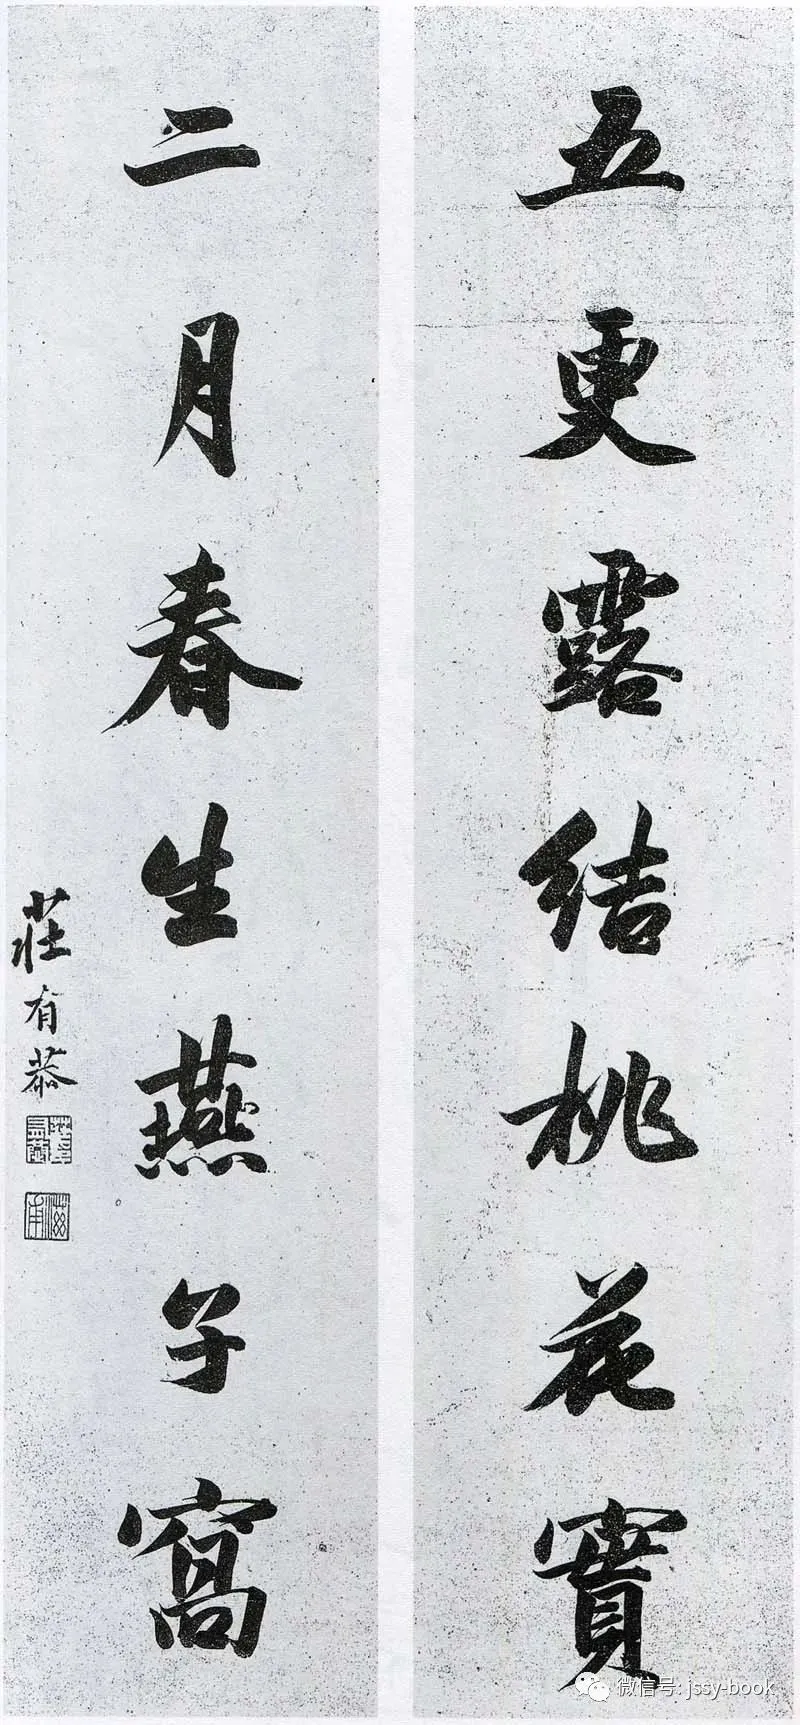 五更露結桃花實
二月春生燕子窩
莊有恭
微信号: jssy-book